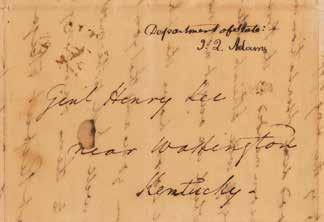 Department of State:
J. Q. Adams
Genl Henry Lee
near Washington
Kentucky-